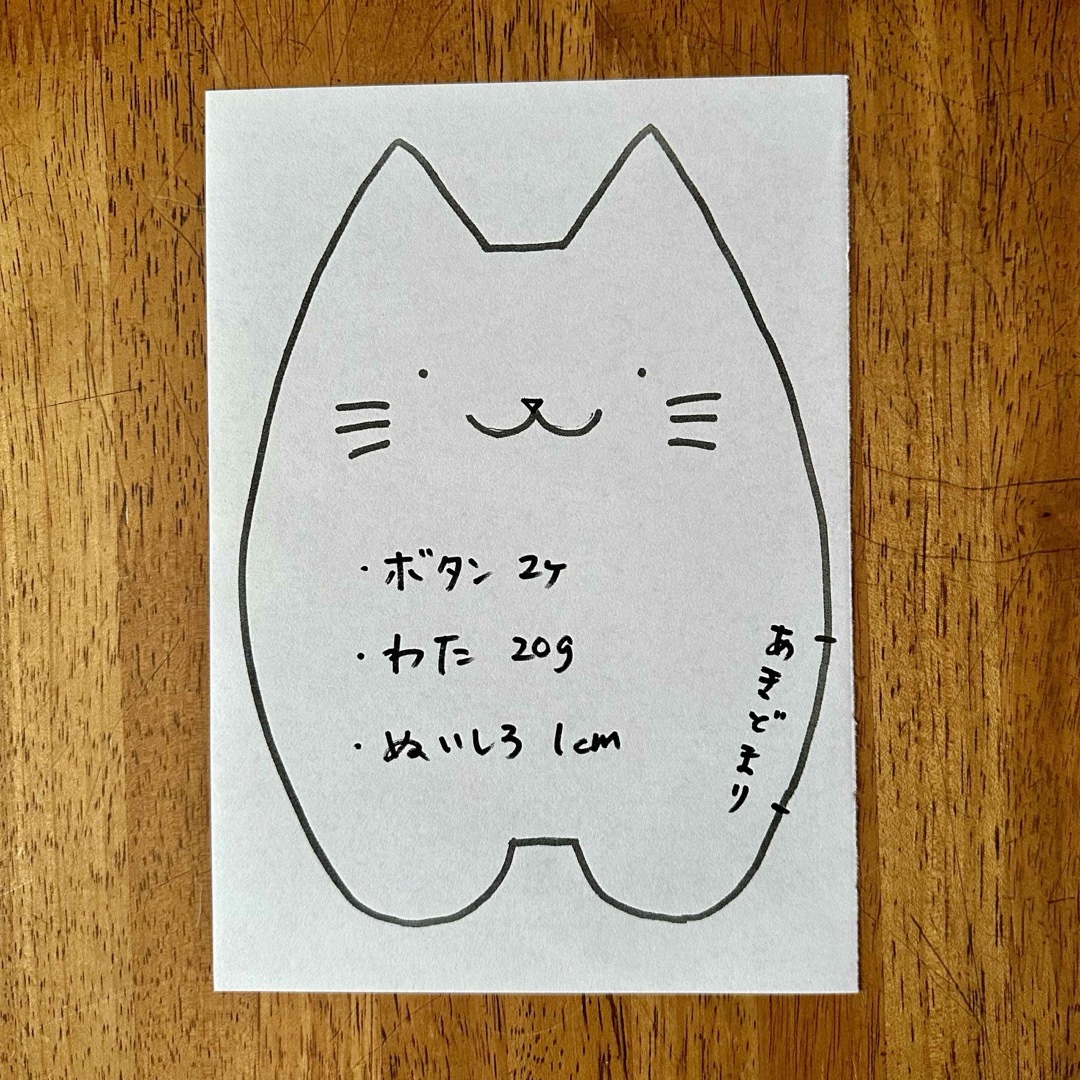 ・ボタン 2ケ
・わた 20g
・ぬいしろ 1cm
あきどまり